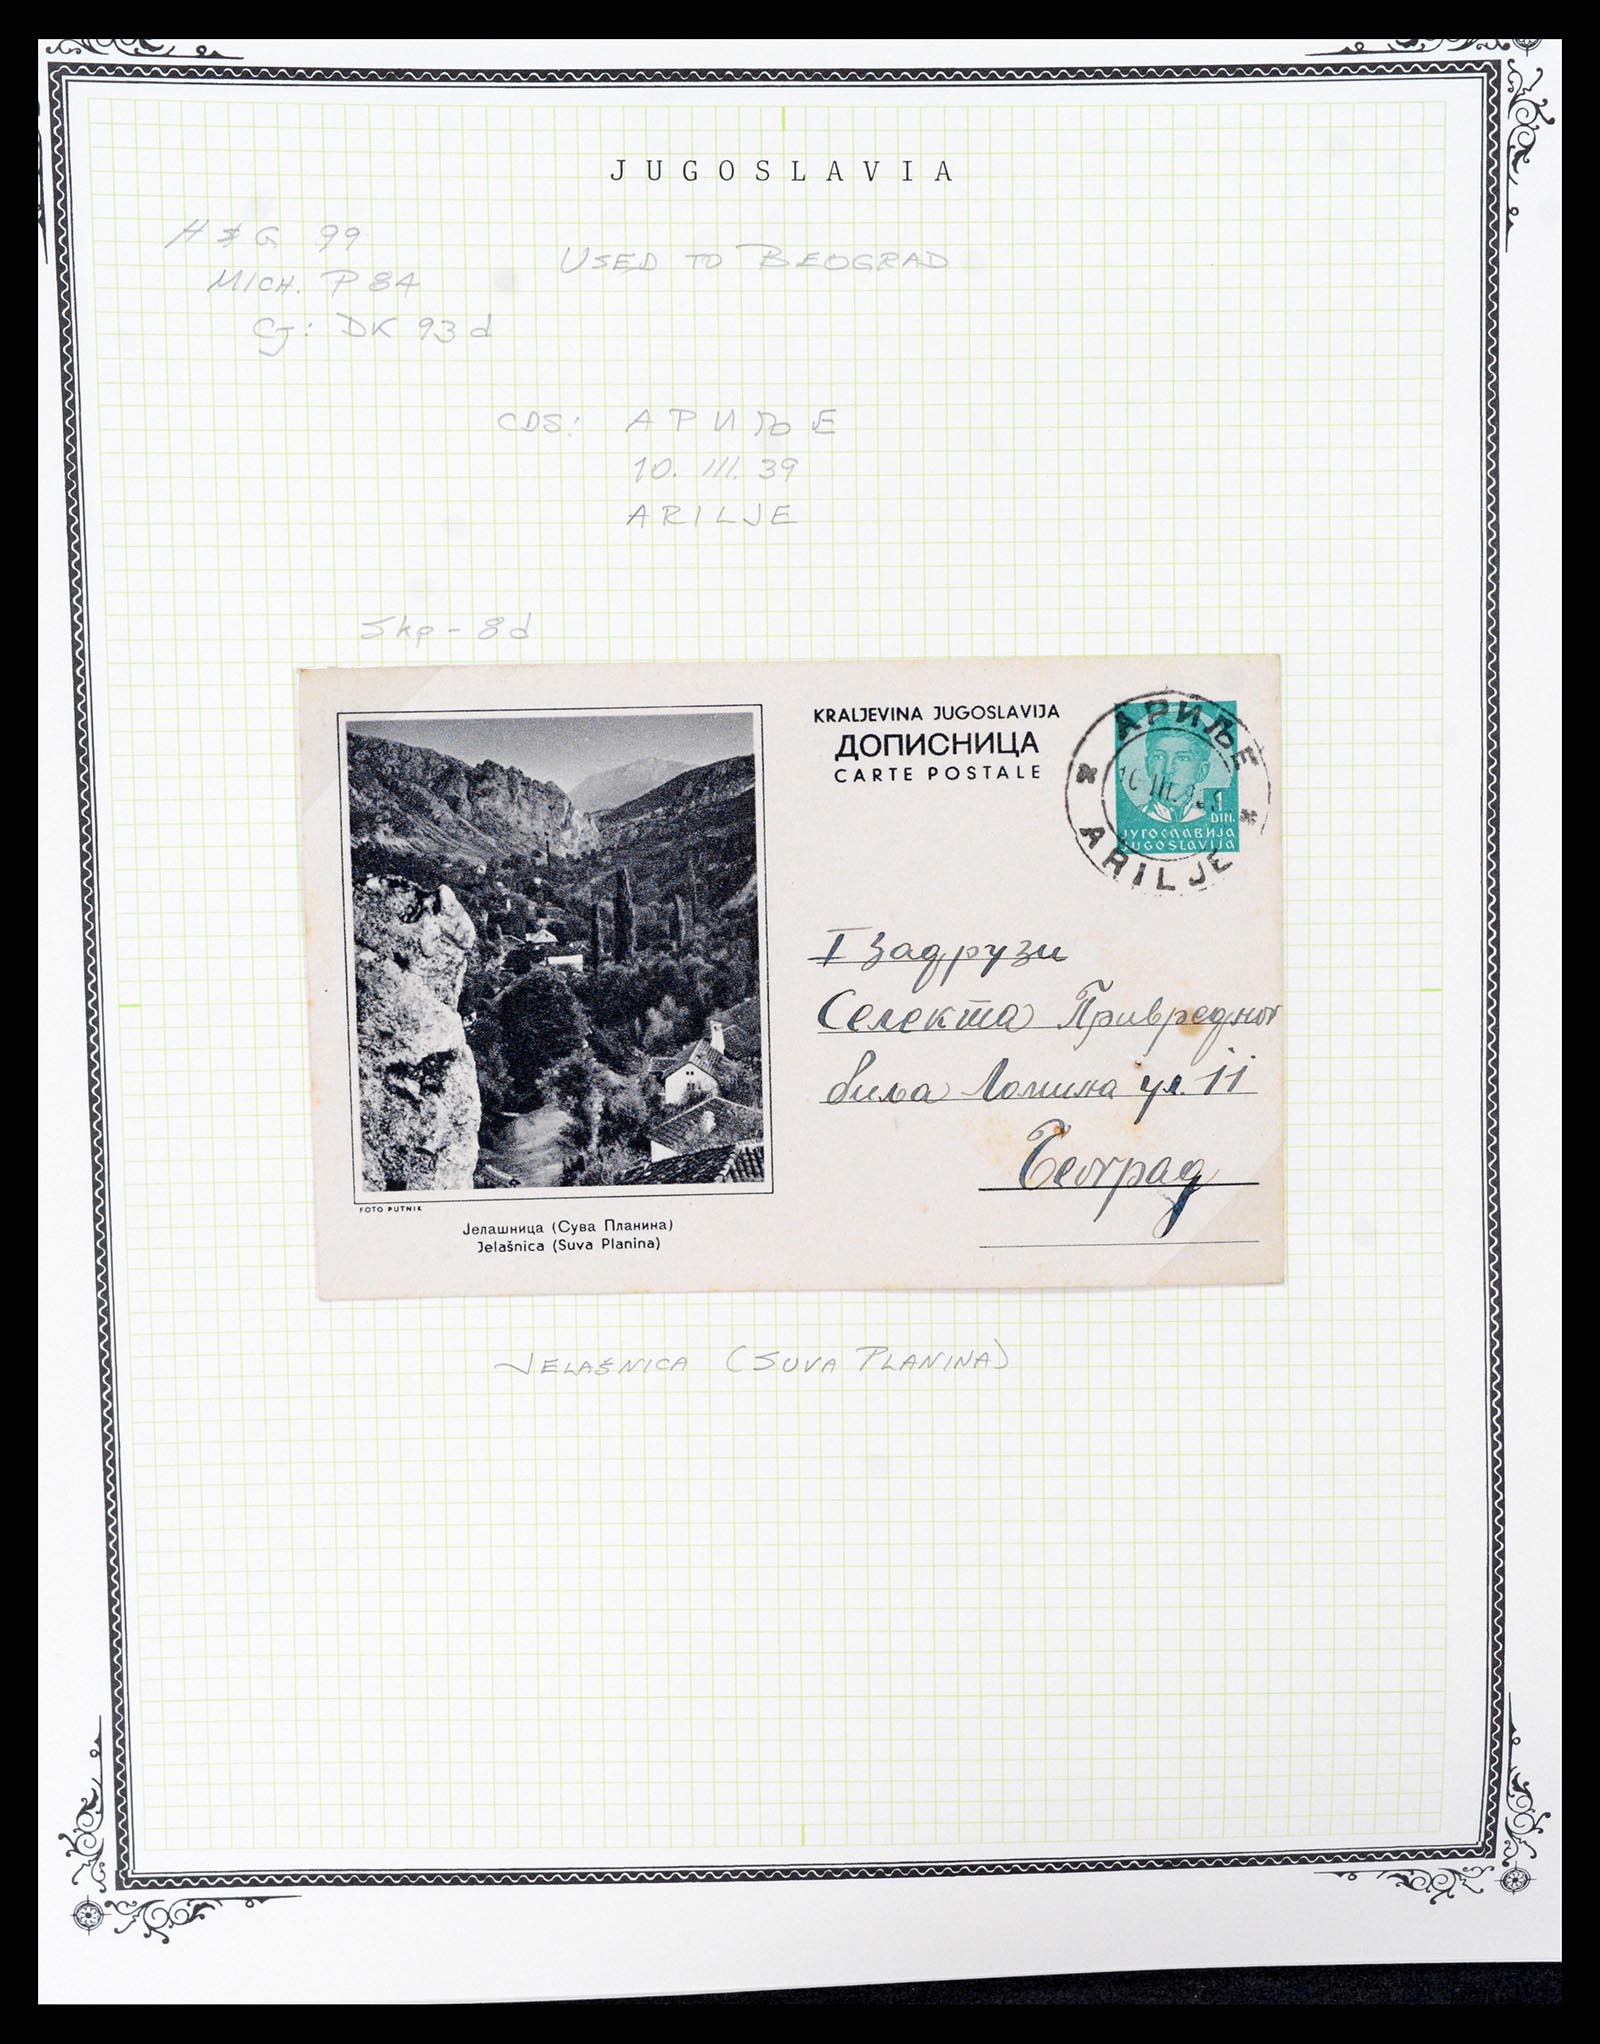 JUGOSLAVIA
H & G 99
USED TO BEOGRAD
MICH. P 84
CJ: DK 93 d
CDS: АРИЉЕ
10. III. 39
ARILJE
Skp - 8d
KRALJEVINA JUGOSLAVIJA
ДОПИСНИЦА
CARTE POSTALE
АРИЉЕ
ARILJE
1
DIN.
ЈУГОСЛАВИЈА
JUGOSLAVIJA
I Задрузи
Селекта Привредног
биља Ломина ул. 11
Београд
FOTO PUTNIK
Јелашница (Сува Планина)
Jelašnica (Suva Planina)
JELAŠNICA (SUVA PLANINA)